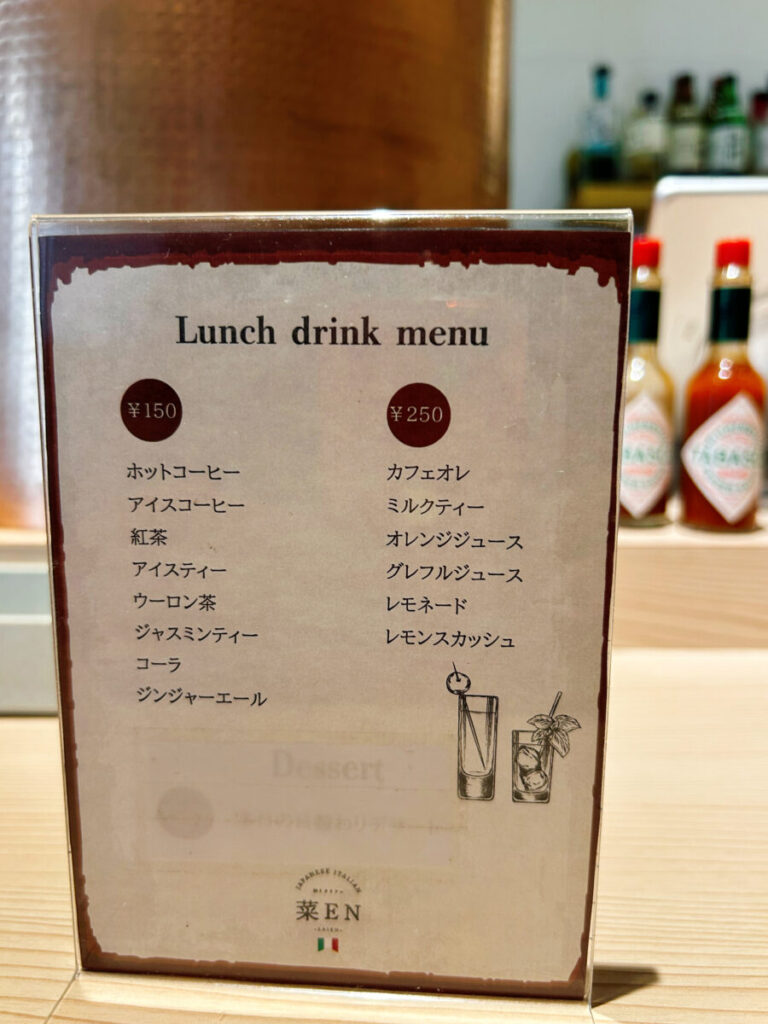 Lunch drink menu
¥150
ホットコーヒー
アイスコーヒー
紅茶
アイスティー
ウーロン茶
ジャスミンティー
コーラ
ジンジャーエール
¥250
カフェオレ
ミルクティー
オレンジジュース
グレフルジュース
レモネード
レモンスカッシュ
Dessert
JAPANESE ITALIAN
菜EN
-SAIEN-
TABASCO